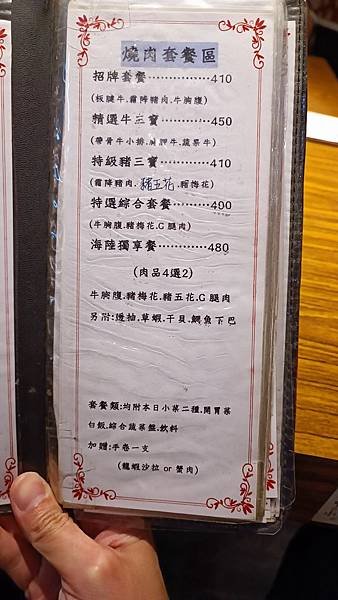 燒肉套餐區
招牌套餐……………410
(板腱牛.霜降豬肉.牛胸腹)
精選牛三寶…………450
(帶骨牛小排.胸腹牛.蔬果牛)
特級豬三寶…………410
(霜降豬肉.豬五花.豬梅花)
特選綜合套餐………400
(牛胸腹.豬梅花.C腿肉)
海陸獨享餐…………480
(肉品4選2)
牛胸腹.豬梅花.豬五花.C腿肉
另附:透抽.草蝦.干貝.鯛魚下巴
套餐類:均附本日小菜二種.開胃菜
白飯.綜合蔬菜盤.飲料
加贈:手卷一支
(龍蝦沙拉 or 蟹肉)